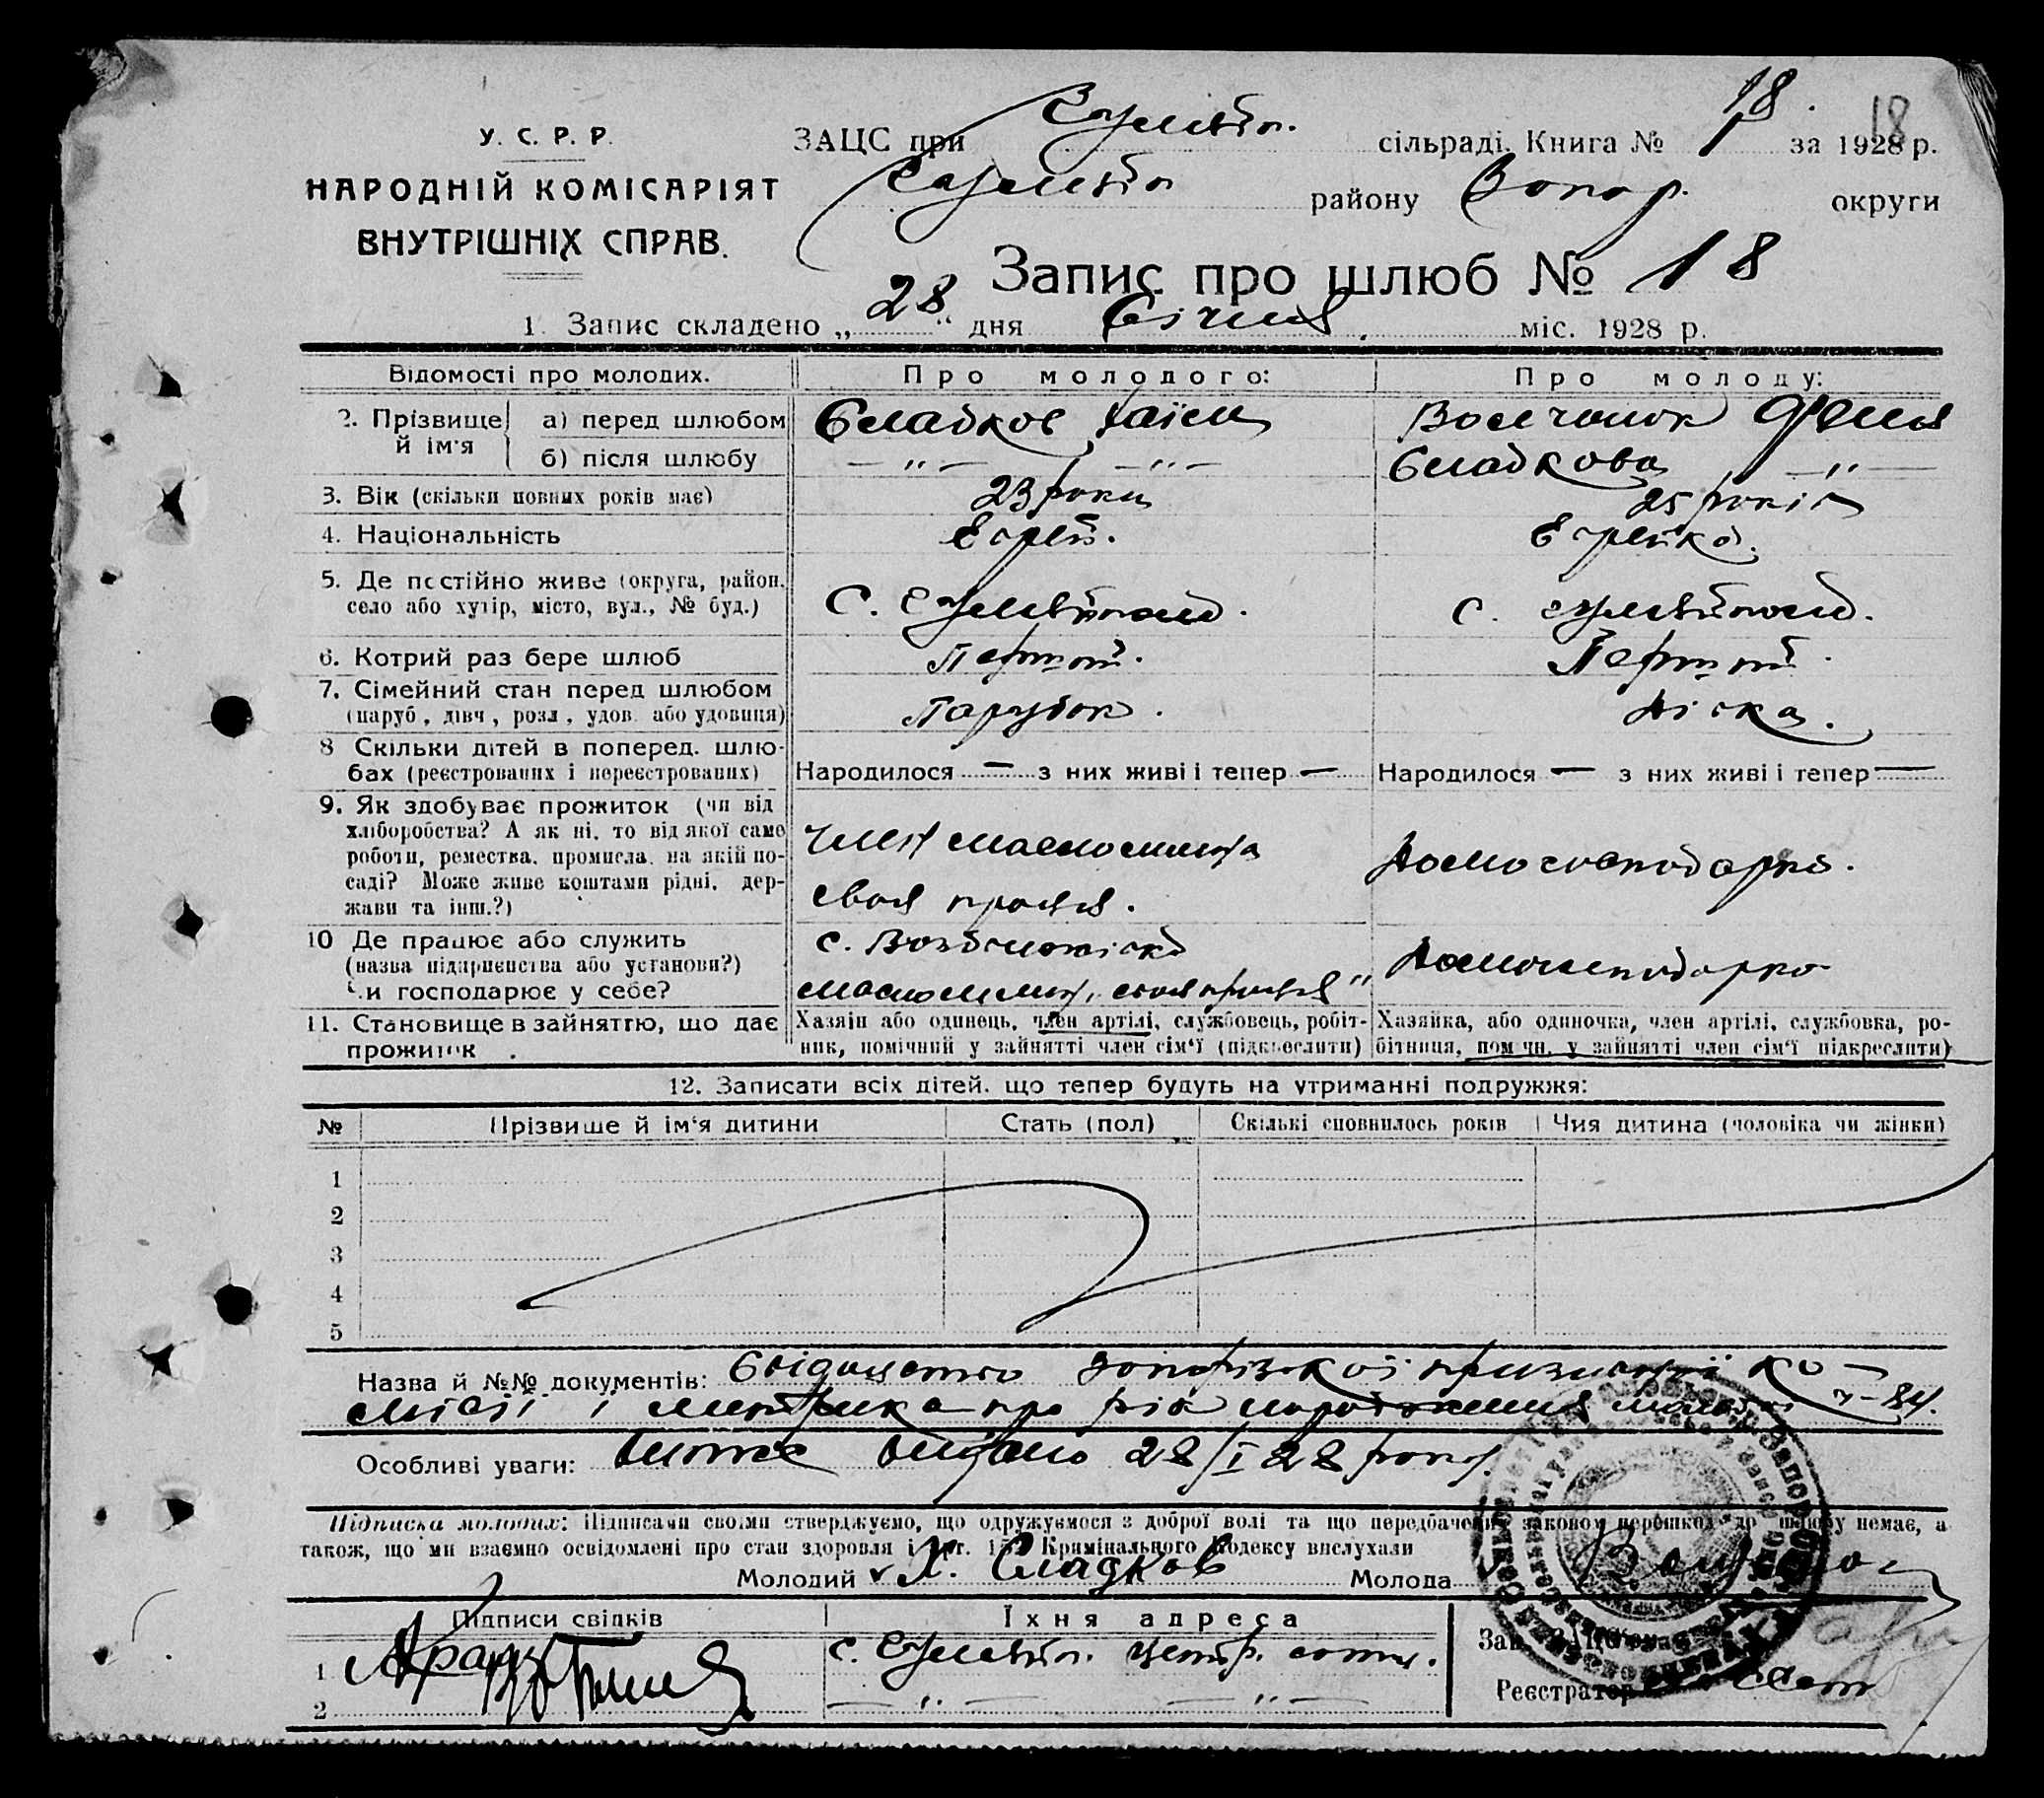 18
У. С. Р. Р.
НАРОДНІЙ КОМІСАРІЯТ
ВНУТРІШНІХ СПРАВ.
ЗАЦС при Гуляйп. сільраді. Книга № 1 за 1928 р.
Гуляйп району Запор. округи
Запис про шлюб № 18
1. Запис складено „28“ дня Січня міс. 1928 р.
Відомості про молодих.
Про молодого:
Про молоду:
2. Прізвище й ім'я
а) перед шлюбом
Сладков Хаїм
Волчонок Феня
б) після шлюбу
— „ — — „ —
Сладкова — „ —
3. Вік (скільки повних років має)
23 роки
25 років
4. Національність
Еврей.
Еврейка.
5. Де постійно живе (округа, район,
село або хутір, місто, вул., № буд.)
С. Гуляйполе.
С. Гуляйполе.
6. Котрий раз бере шлюб
Перший.
Перший.
7. Сімейний стан перед шлюбом
(паруб., дівч., розл., удов. або удовиця)
Парубок.
Дівка.
8 Скільки дітей в поперед. шлю-
бах (реєстрованих і нереєстрованих)
Народилося — з них живі і тепер —
Народилося — з них живі і тепер —
9. Як здобуває прожиток (чи від
хліборобства? А як ні, то від якої саме
роботи, ремества, промисла, на якій по-
саді? Може живе коштами рідні, дер-
жави та інш.?)
Член маслоспілки
своя праця.
Домогосподарка.
10 Де працює або служить
(назва підприємства або установи?)
Чи господарює у себе?
с.
своя праця"
Домогосподарка
11. Становище в зайняттю, що дає
прожиток.
Хазяїн або одинець, член артілі, службовець, робіт-
ник, помічний у зайнятті член сім'ї (підкреслити)
Хазяйка, або одиночка, член артілі, службовка, ро-
бітниця, помічн. у зайнятті член сім'ї підкреслити)
12. Записати всіх дітей, що тепер будуть на утриманні подружжя:
№ Прізвище й ім'я дитини Стать (пол) Скількі сповнилось років Чия дитина (чоловіка чи жінки)
1
2
3
4
5
Назва й №№ документів: Свідоцтво Запорізької призивної ко-
місії і метрика про рік народження молодої ч-84.
Особливі уваги: видано 28/I 28 року.
Підписка молодих: Підписами своїми стверджуємо, що одружуємося з доброї волі та що передбачених законом перешкод до шлюбу немає, а
також, що ми взаємно освідомлені про стан здоровля і Кримінального Кодексу вислухали
Молодий Х. Сладков Молода
Підписи свідків
Їхня адреса
1
с. Гуляйп. центр. сотн.
2
— „ — — „ —
Зав. ЗАЦС'ом
Реєстратор